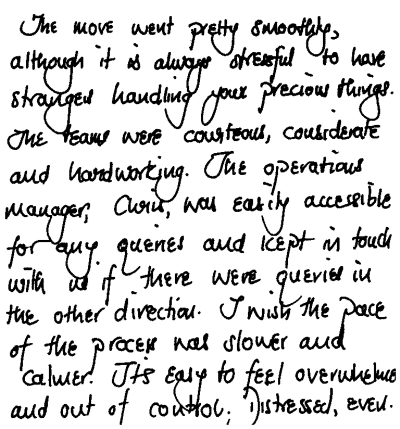 The move went pretty smoothly,
although it is always stressful to have
strangers handling your precious things.
The teams were courteous, considerate
and hardworking. The operations
manager, Chris, was easily accessible
for any queries and kept in touch
with us if there were queries in
the other direction. I wish the pace
of the process was slower and
calmer. It's easy to feel overwhelmed
and out of control. Distressed, even.